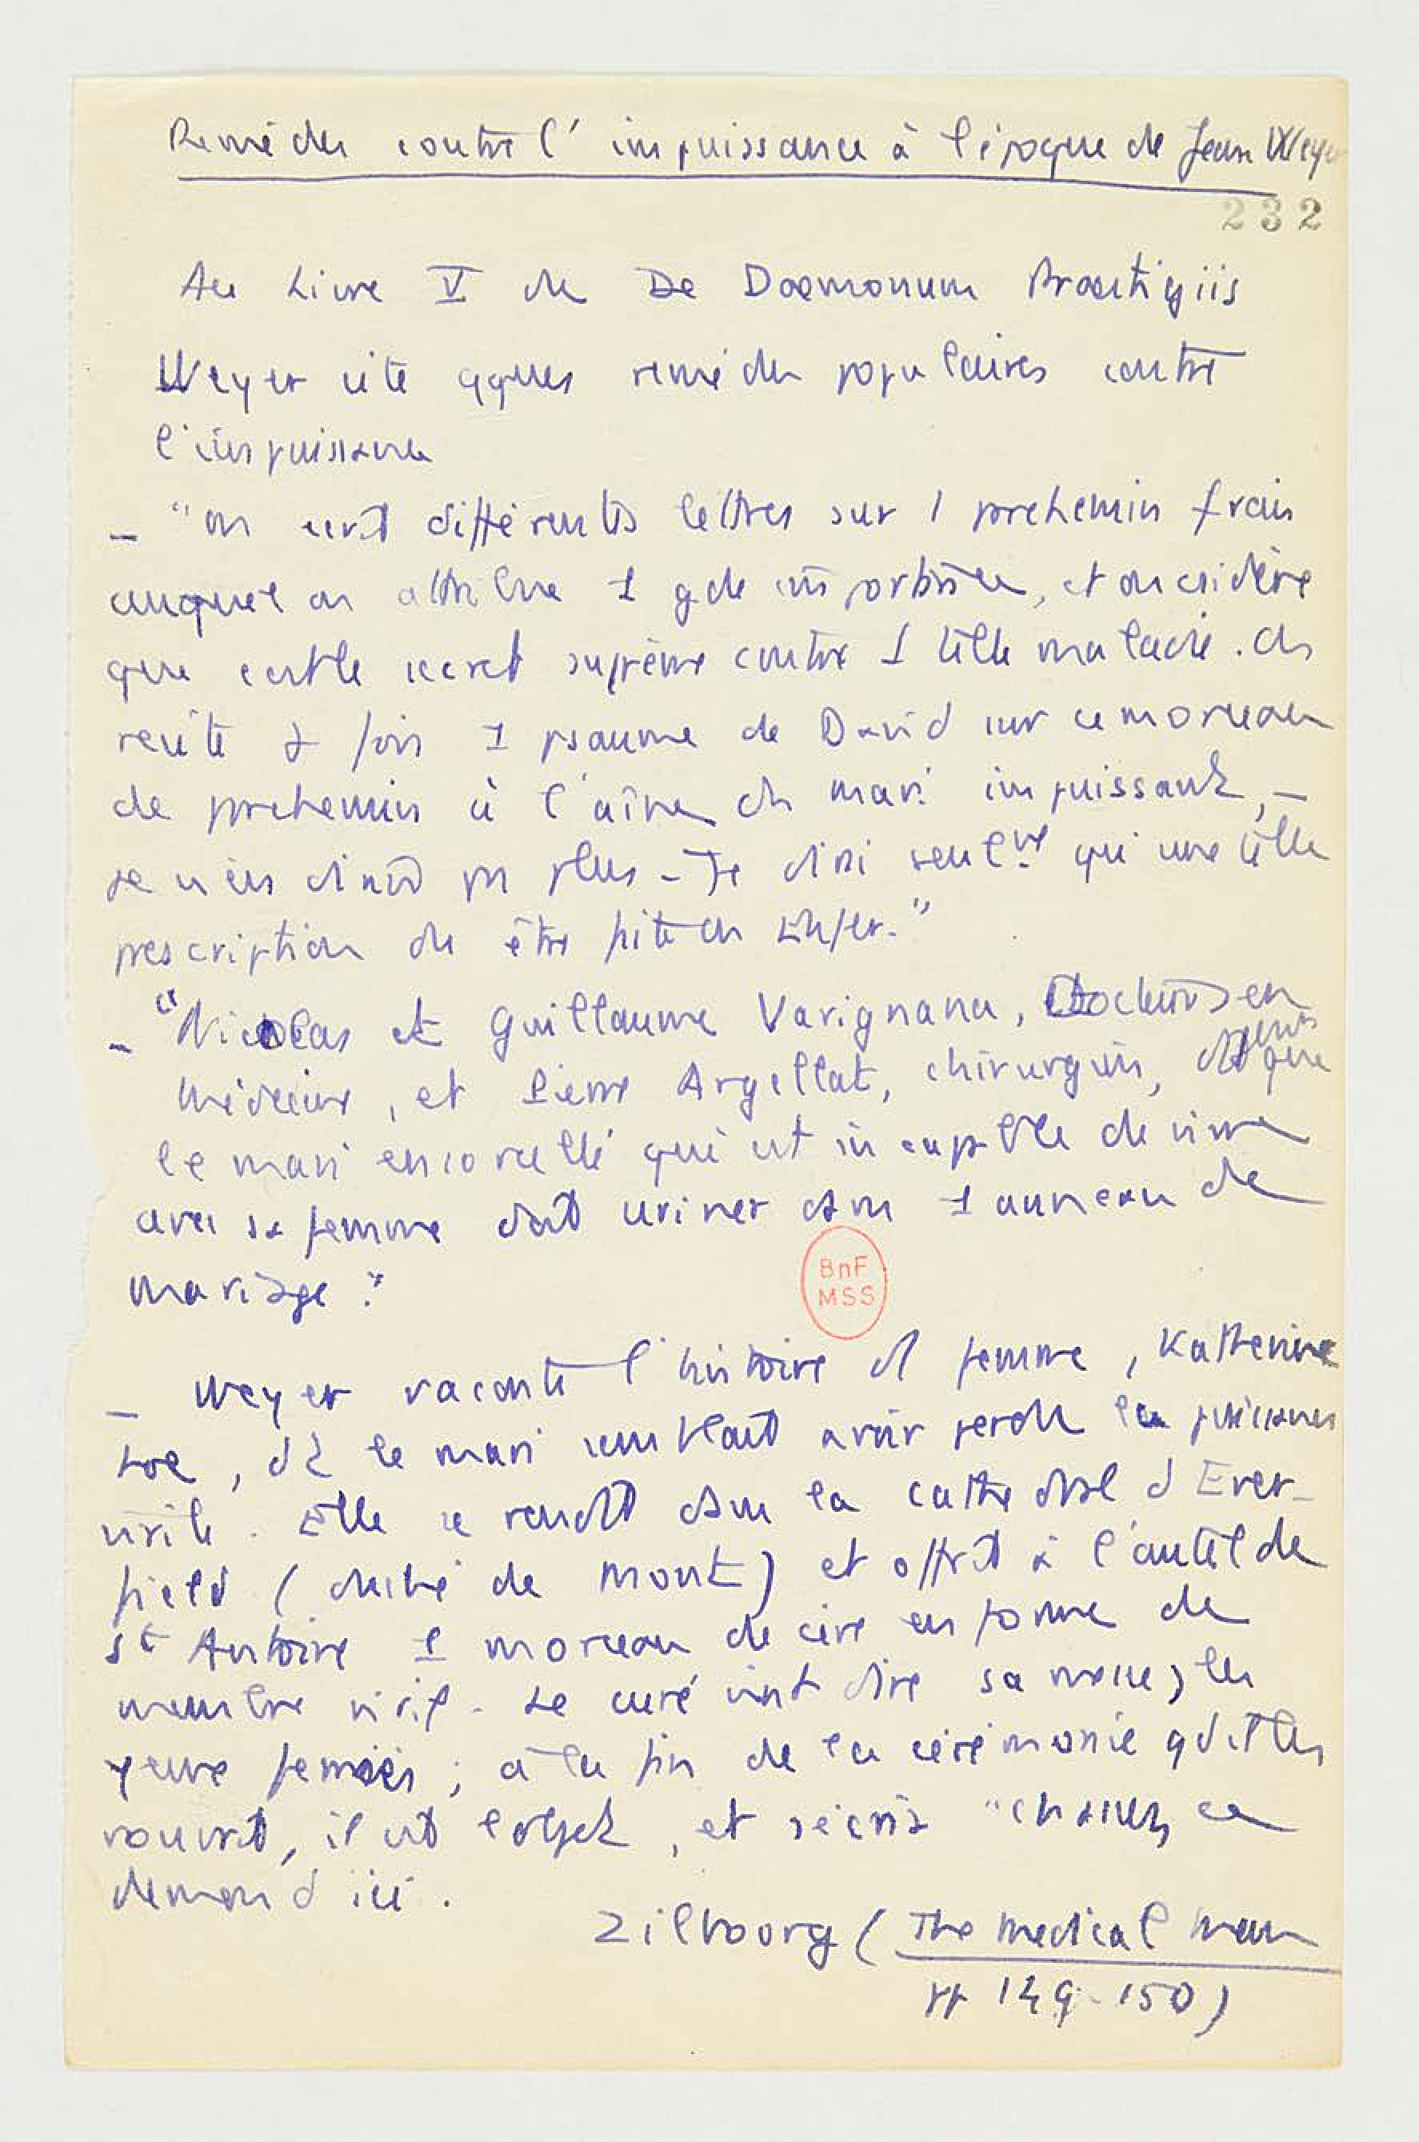 Remèdes contre l'impuissance à l'époque de Jean Weyer
232
Au Livre V de De Daemonum Praestigiis
Weyer cite qques remèdes populaires contre
l'impuissance
– "on écrit différentes lettres sur 1 prchemin frais
auquel on attribue 1 gde importance, et on csidère
que c'est le secret suprême contre 1 telle maladie. On
récite 7 fois 1 psaume de David sur ce morceau
de prchemin à l'aîne du mari impuissant, –
je n'en dirai ps plus – Je dirai seulmt qu'une telle
prescription du être faite en Enfer."
– "Nicolas et Guillaume Varignana, Docteurs en
médecine, et Pierre Argellat, chirurgien, disent que
le mari ensorcellé qui est incapable de vivre
avec sa femme doit uriner dans 1 anneau de
mariage."
– Weyer raconte l'histoire d'1 femme, Katherine
Loe, dt le mari semblait avoir perdu la puissance
virile. Elle se rendit dans la cathédrale d'Ever-
field (duché de Mont) et offrit à l'autel de
St Antoine 1 morceau de cire en forme de
membre viril. Le curé vint dire sa messe, les
yeux fermés ; à la fin de la cérémonie qd il les
rouvrit, il vit l'objet, et s'écria "chassez ce
démon d'ici.
Zilboorg (The Medical Man
pp 149-150)
BnF
MSS